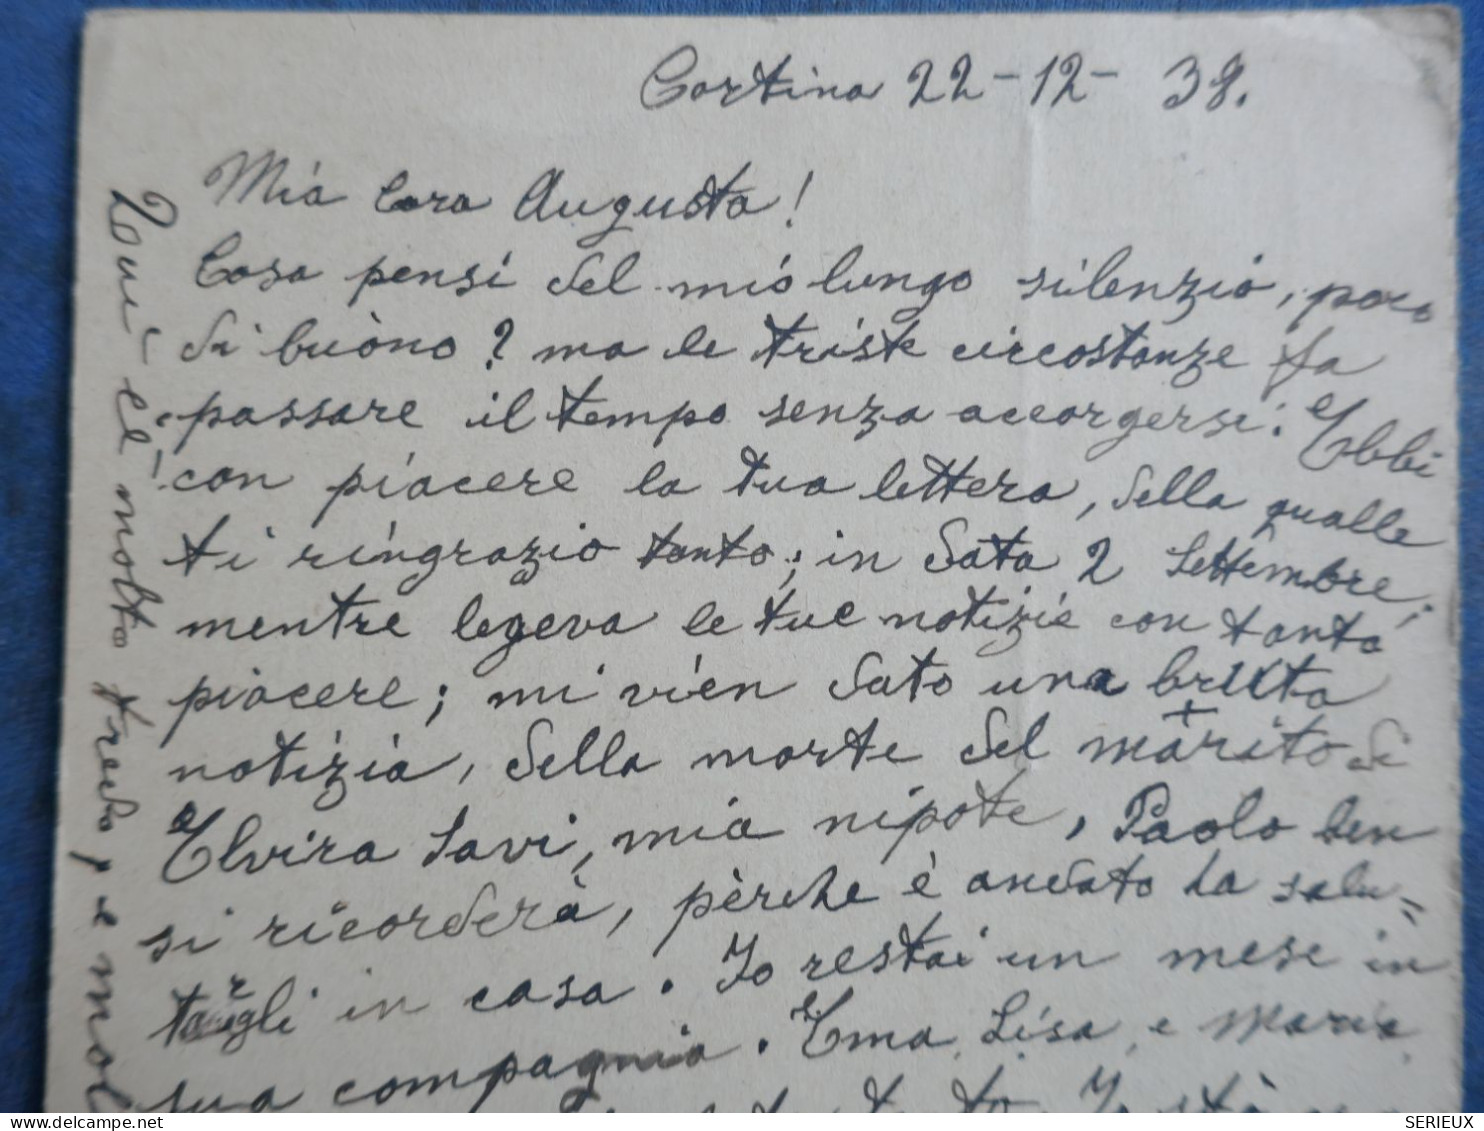 Cortina 22-12- 38.
Mia Cara Augusta!
Cosa pensi del mio lungo silenzio, poco
di buòno? ma le triste circostanze fa
passare il tempo senza accorgersi. Ebbi
con piacere la tua lettera, della qualle
ti ringrazio tanto; in data 2 Settembre,
mentre legeva le tue notizie con tanto
piacere; mi vien dato una brutta
notizia, della morte del marito di
Elvira Savi, mia nipote, Paolo ben
si ricorderà, pèrche è andato da salu=
targli in casa. Io restai un mese in
sua compagnia. Ema, Lisa, e Maria
Qui c'è molto fredo, e mol
SERIEUX